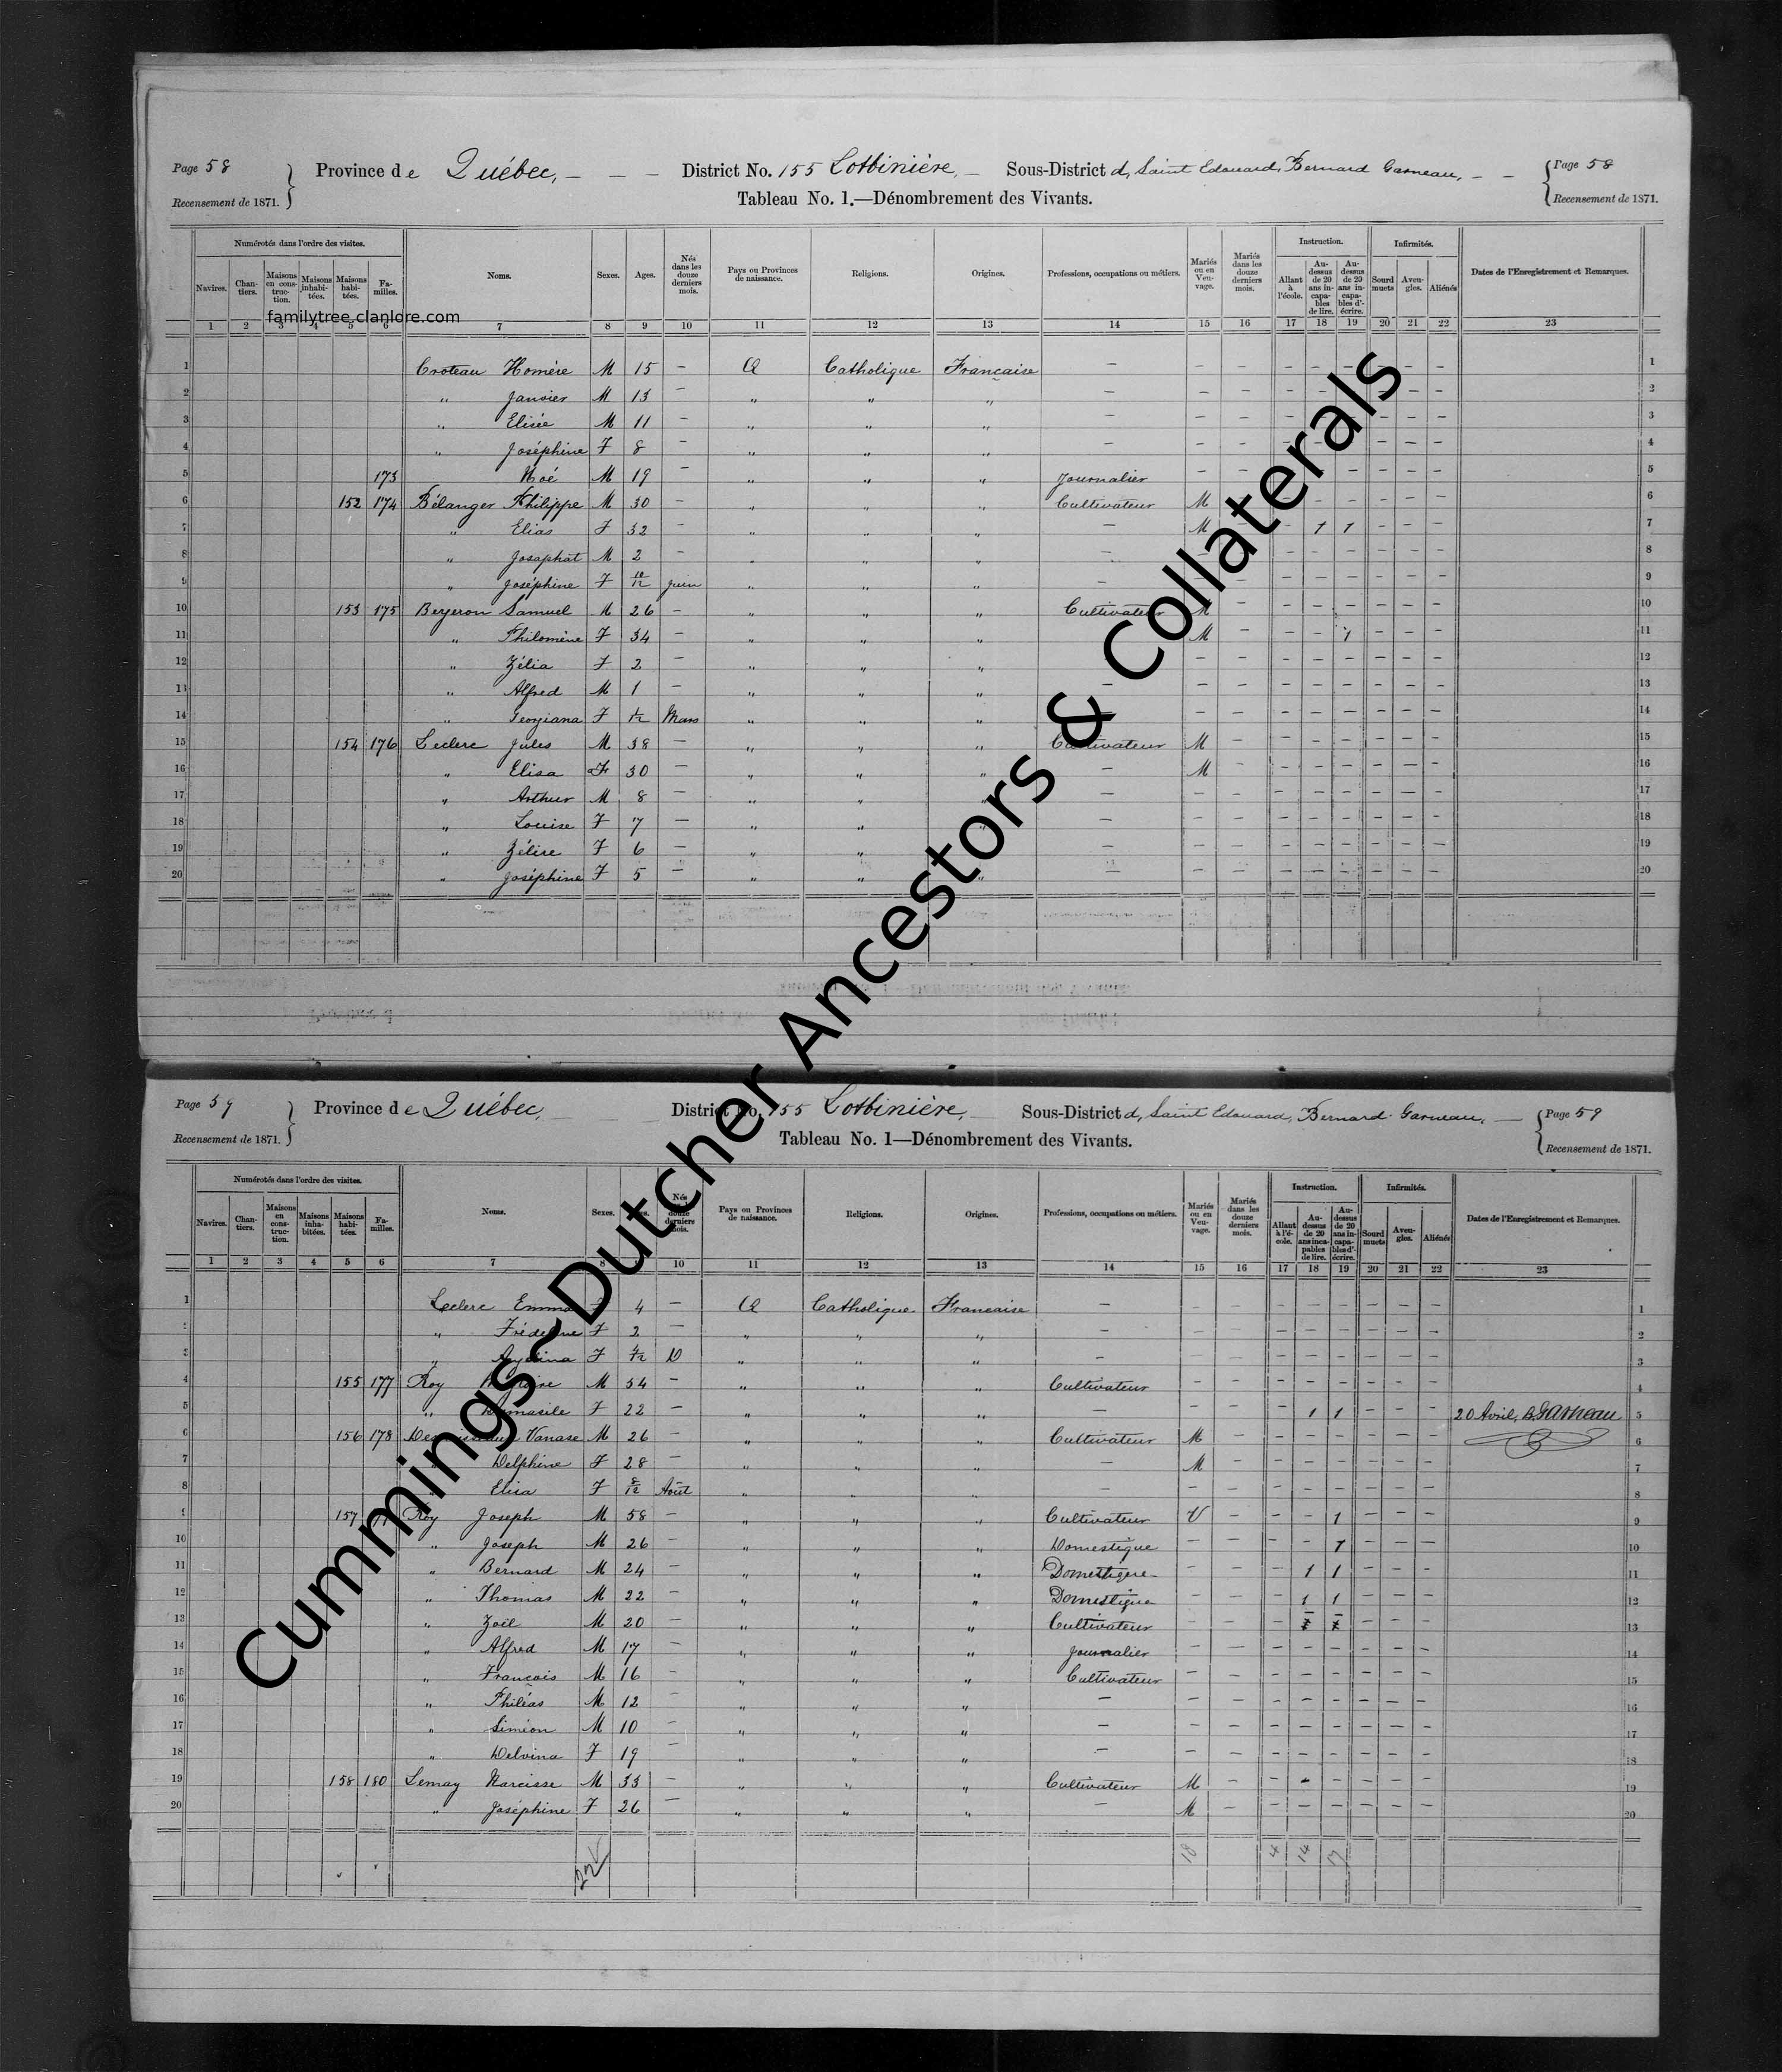 Page 58
Province de Québec, - - -
District No. 155 Lotbinière, -
Sous-District d, Saint Edouard, Bernard Garneau, - -
Page 58
Recensement de 1871.
Tableau No. 1.—Dénombrement des Vivants.
Recensement de 1871.
Numérotés dans l'ordre des visites.
Navires. Chantiers. Maisons en construction. Maisons inhabitées. Maisons habitées. Familles. Noms. Sexes. Ages. Nés dans les douze derniers mois. Pays ou Provinces de naissance. Religions. Origines. Professions, occupations ou métiers. Mariés ou en Veuvage. Mariés dans les douze derniers mois. Instruction. Allant à l'école. Au-dessus de 20 ans incapables de lire. Au-dessus de 20 ans incapables d'écrire. Infirmités. Sourd muets Aveugles. Aliénés Dates de l'Enregistrement et Remarques.
familytree.clanlore.com
1 2 3 4 5 6 7 8 9 10 11 12 13 14 15 16 17 18 19 20 21 22 23
1 Croteau Homère M 15 - Q Catholique Française - 1
2 " Janvier M 13 - " " " - 2
3 " Elisée M 11 - " " " - 3
4 " Joséphine F 8 - " " " - 4
5 173 Noé M 19 - " " " Journalier 5
6 152 174 Bélanger Philippe M 30 - " " " Cultivateur M 6
7 " Elias F 32 - " " " - M 1 1 7
8 " Josaphat M 2 - " " " - 8
9 " Joséphine F 10/12 Juin " " " - 9
10 153 175 Bergeron Samuel M 26 - " " " Cultivateur M 10
11 " Philomène F 34 - " " " M 1 11
12 " Zélia F 2 - " " " 12
13 " Alfred M 1 - " " " - 13
14 " Georgiana F 1/12 Mars " " " 14
15 154 176 Leclerc Jules M 38 - " " " Cultivateur M 15
16 " Elisa F 30 - " " " - M 16
17 " Arthur M 8 - " " " - 17
18 " Louise F 7 - " " " - 18
19 " Zélire F 6 - " " " - 19
20 " Joséphine F 5 - " " " - 20
Page 59
Province de Québec,
District No. 155 Lotbinière,
Sous-District d, Saint Edouard, Bernard Garneau, -
Page 59
Recensement de 1871.
Tableau No. 1—Dénombrement des Vivants.
Recensement de 1871.
Numérotés dans l'ordre des visites.
Navires. Chantiers. Maisons en construction. Maisons inhabitées. Maisons habitées. Familles. Noms. Sexes. Nés douze derniers mois. Pays ou Provinces de naissance. Religions. Origines. Professions, occupations ou métiers. Mariés ou en Veuvage. Mariés dans les douze derniers mois. Instruction. Allant à l'école. Au-dessus de 20 ans incapables de lire. Au-dessus de 20 ans incapables d'écrire. Infirmités. Sourd muets Aveugles. Aliénés Dates de l'Enregistrement et Remarques.
1 2 3 4 5 6 7 8 10 11 12 13 14 15 16 17 18 19 20 21 22 23
1 Leclerc Emma F 4 - Q Catholique Francaise - 1
2 " F 2 - " " " - 2
3 " F 4/12 D " " " - 3
4 155 177 Roy M 54 - " " " Cultivateur 4
5 " F 22 - " " " - 1 1 20 Avril, B Garneau 5
6 156 178 Vanase M 26 - " " " Cultivateur M 6
7 Delphine F 28 - " " " - M 7
8 Elisa F 8/12 Août " " " - 8
9 157 Roy Joseph M 58 - " " " Cultivateur V 1 9
10 " Joseph M 26 - " " " Domestique 1 10
11 " Bernard M 24 - " " " Domestique 1 1 11
12 " Thomas M 22 - " " " Domestique 1 1 12
13 " Zoël M 20 - " " " Cultivateur 13
14 " Alfred M 17 - " " " Journalier 14
15 " Francois M 16 - " " " Cultivateur 15
16 " Philéas M 12 - " " " - 16
17 " Siméon M 10 - " " " - 17
18 " Delvina F 19 - " " " - 18
19 158 180 Lemay Narcisse M 33 - " " " Cultivateur M 19
20 " Joséphine F 26 - " " " - M 20
22 18 4 14 17
Cummings ~ Dutcher Ancestors & Collaterals